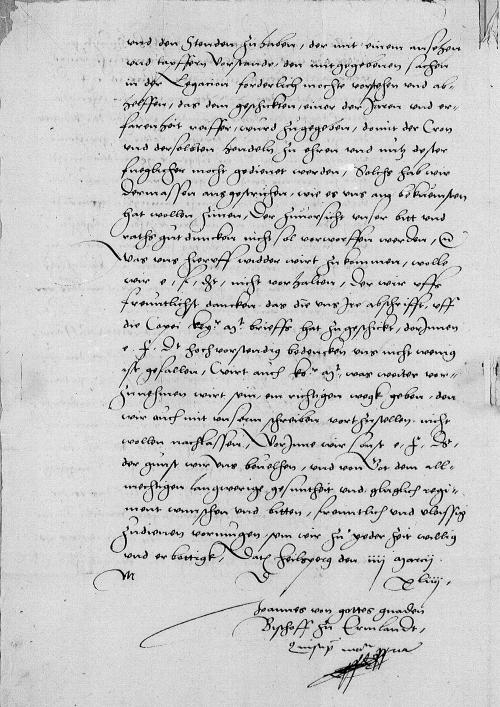 vnd den Stenden zuhaben, der mit einem ansehen
vnd tapffern vorstande, den mitgegebenen sachen
in der Legacion forderlich mochte vorsehen vnd ab-
helffen, das dem geschickten, einer der Jaren vnd er-
farenheit reiffer, wurd zugegeben, domit der Cron
vnd derselbten hendeln zu ehren vnd nutz dester
fueglicher mocht gedienet werden, Solchs hab wir
dermassen angestrichen, wie es vns am bequemsten
hat wollen zimen, Der zuuorsicht vnser bitt vnd
raths gutduncken nicht sol vorworffen werden,
Was vns hieruff widder wirt zukommen, wolle
wir e, f, dt, nicht vorhalten, Der wir vffs
freuntlichst dancken das die vns Ire abschrifft, vff
die Copei key mt brieffs hat zugeschickt, dorJnnen
e. f. dt hochvorstendig bedencken vns nicht wenig
ist gefallen, Wirt auch ko mt, was weiter vor-
zunehmen wirt sein, ein richtigen wegk geben, den
wir auch mit vnserm schreiben vortzustellen nicht
wollen nachlassen, WorJnne wir sonst e, f, dt,
der gunst wir vns beuelhen, vnd von Got dem all-
mechtigen langwerige gesuntheit vnd gluglich regi-
ment wunschen vnd bitten, freuntlich vnd vleissig
zudienen vormugen, sein wir zu yeder zeit willig
vnd erbottigk, Dat Heilsperg den iiij Marcij
M D Xliij,
Joannes von gottes gnaden
Bischoff zu Ermlandt,